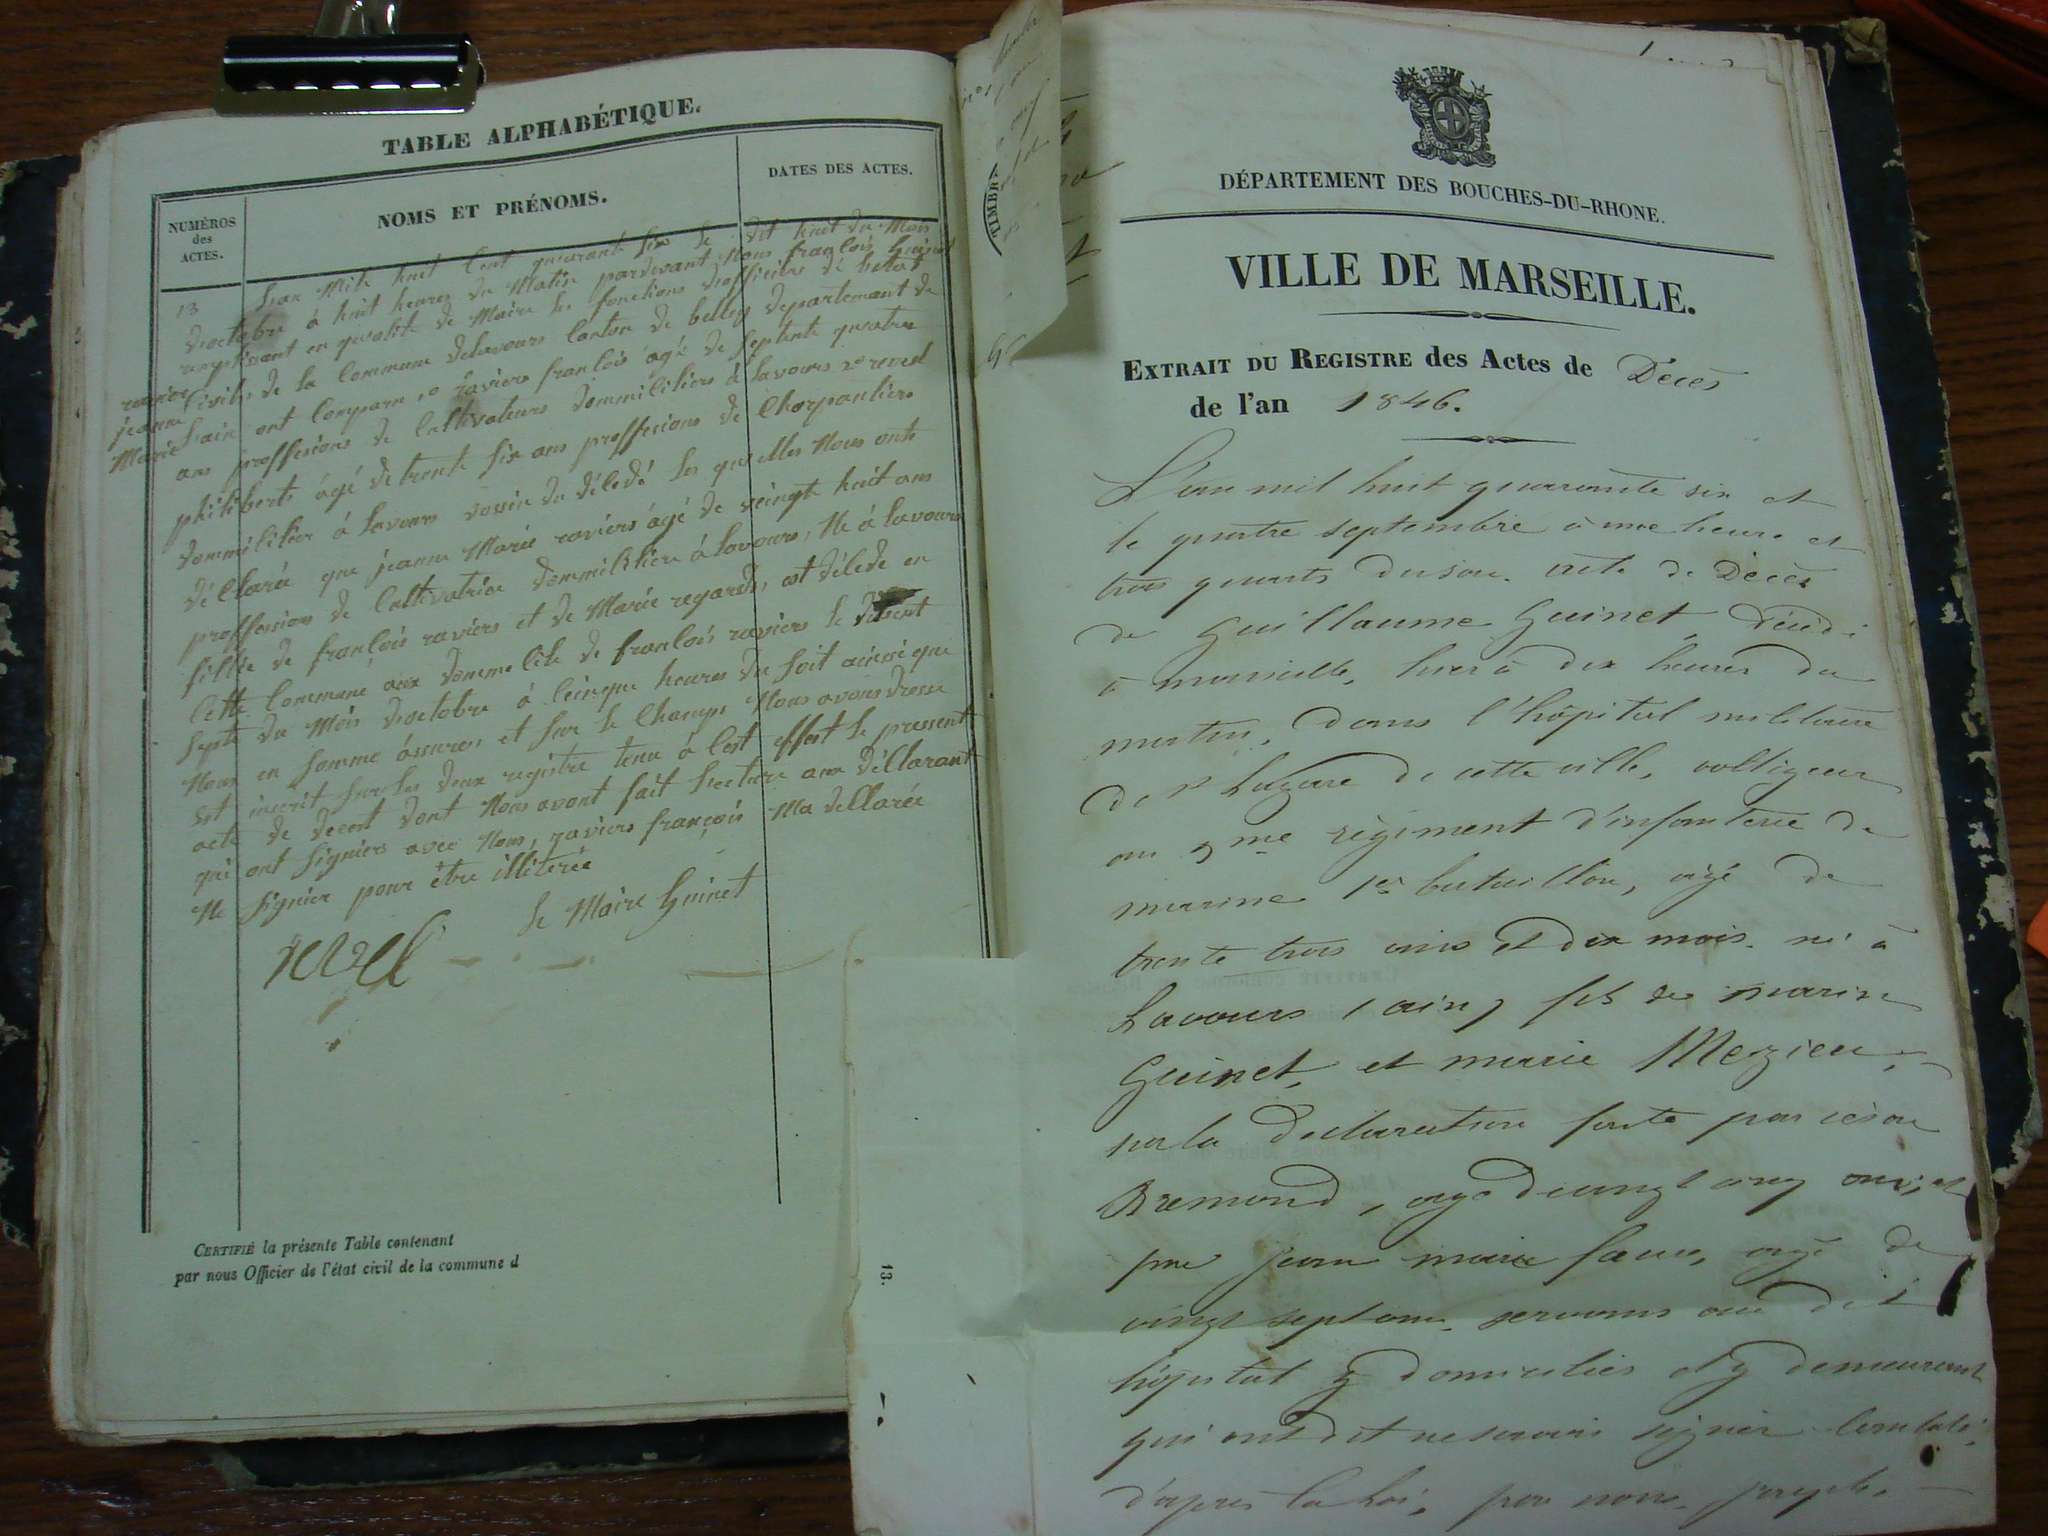 TABLE ALPHABÉTIQUE.
NUMÉROS
des
ACTES.
NOMS ET PRÉNOMS.
DATES DES ACTES.
13 Lan Mile huit Cent quarante six le dit huit du Mois
doctobre à huit heures du Matin pardevant Nous franlois Guinet
ramplissant en qualité de Maire les fonctions dofficiers de letat
ravier
jeanne
Marie
Civils de la Commune delavours Canton de belley departement de
Lain ont Comparu, raviers franlois agé de septente quatre
ans proffesions de Cultivateurs dommilliliers à lavours revel
philiberts âgé de trente six ans proffesions de Charpantiers
dommililier à lavours vossin du délédé les quelles Nous onts
déClarée que jeanne Marie raviers agé de veingte huit ans
proffession de Cultivatrice dommililière à lavours, Né à lavours
fillie de franlois raviers et de Marie regards, est délédé en
Cette Commune aux dommelile de franlois raviers le
septe du Mois doctobre à Ceinque heures du soit ainssi que
Nous en somme assures et sur le Champs Nous avons dressé
est inscrit sur les deux registre tenu à Cest effest le pressent
acte de decest dont Nous avont fait lecture aux déClarant
qui ont signiers avec Nous, raviers françois Ma déllarée
Ne signier pour être illiterée
le Maire Guinet
revel
CERTIFIÉ la présente Table contenant
par nous Officier de l'état civil de la commune d
TIMBR
13.
DÉPARTEMENT DES BOUCHES-DU-RHONE.
VILLE DE MARSEILLE.
EXTRAIT DU REGISTRE des Actes de Décès
de l'an 1846.
L'an mil huit quarante six et
le quatre septembre à une heure et
trois quarts du soir. acte de Décès
de Guillaume Guinet, décédé
à marseille, hier à dix heures du
matin, dans l'hôpital militaire
de cette ville, voltigeur
au me régiment d'infanterie de
marine 1er bataillon, agé de
trente trois ans et dix mois. né à
Lavours (ain) fils de marin
Guinet, et marie Mezieu,
sur la déclaration faite par césar
Bremond, agé de vingt cinq ans, et
par jean marie faure, agé de
vingt sept ans, servans au dit
hôpital y domiciliés et y demeurant
qui ont dit ne savoir signer. Constaté
d'apres la loi, par nous, joseph